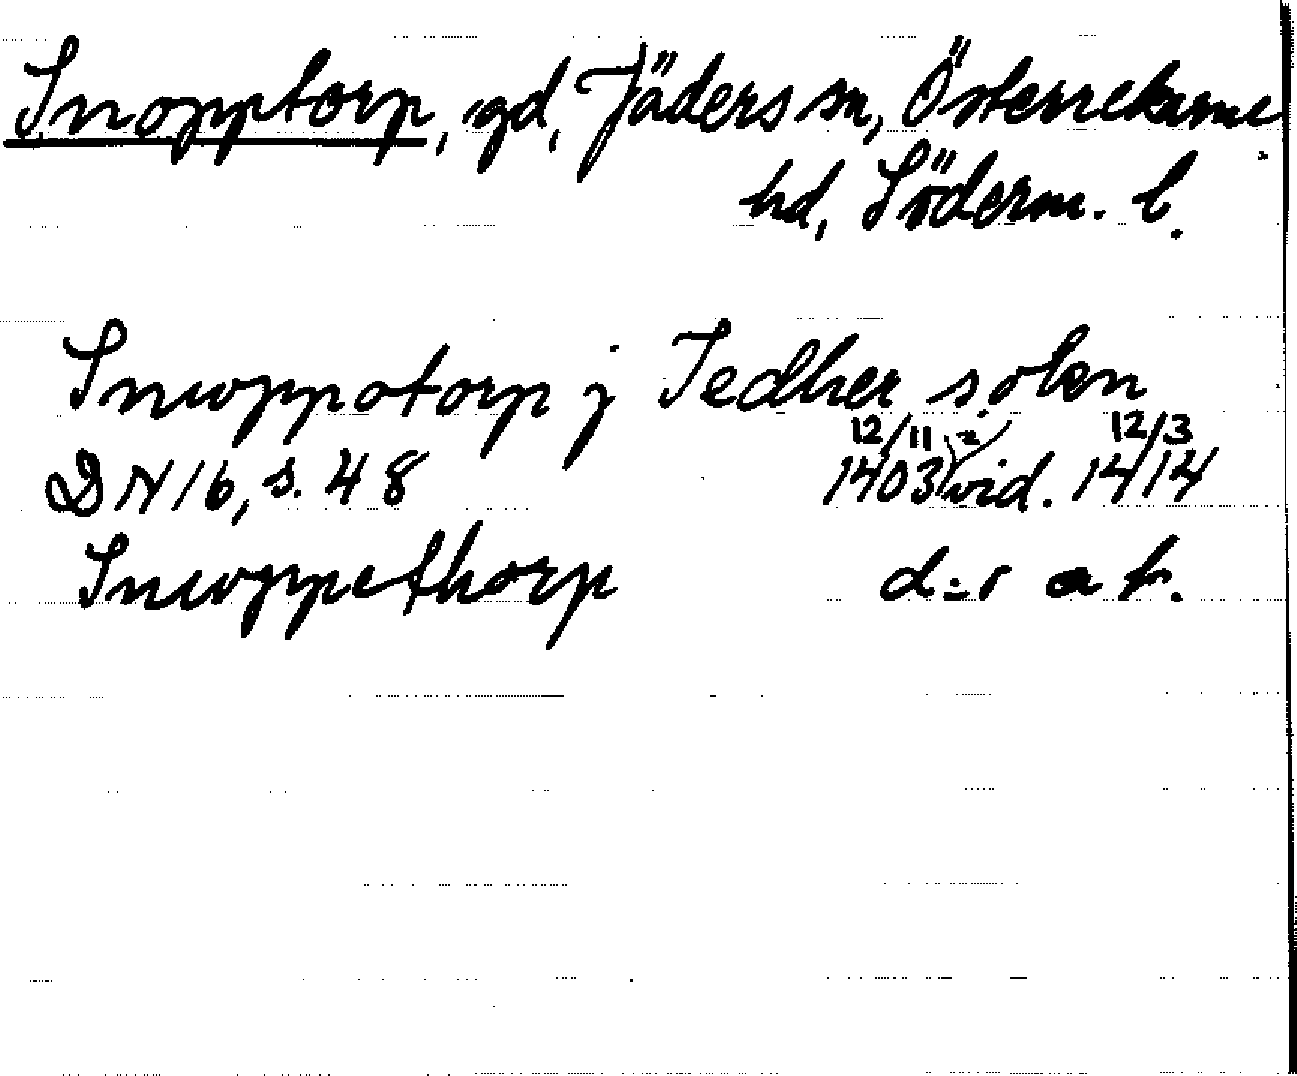 Snopptorp, gd, Jäders sn, Österrekarne
hd, Söderm. l.
Snwppotorp j Jedher sokn
12/11 12/3
DN 16, s. 48 1403 i vid. 1414
Snwppethorp d:o a br.